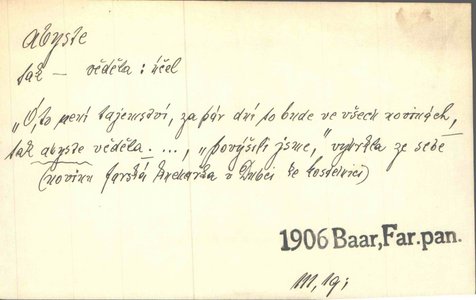 abyste
tak – věděla : účel
„O, to není tajemství, za pár dní to bude ve všech novinách,
tak abyste věděla. ..., „povýšili jsme," vyhrkla ze sebe
(novinu farská kuchařka v Dubči ke kostelnici)
1906 Baar, Far. pan.
111, 19;